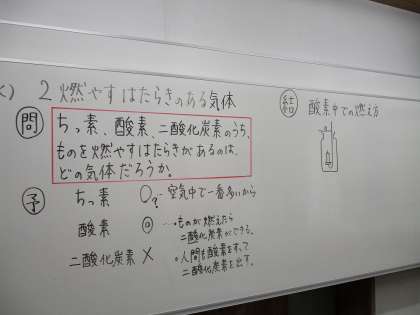 2 燃やすはたらきのある気体
問
ちっ素、酸素、二酸化炭素のうち、
ものを燃やすはたらきがあるのは、
どの気体だろうか。
予
ちっ素 ○? … 空気中で一番多いから
酸素 ◎ … ものが燃えたら
二酸化炭素ができる。
二酸化炭素 × 。人間も酸素をすって
二酸化炭素を出す。
結 酸素中での燃え方